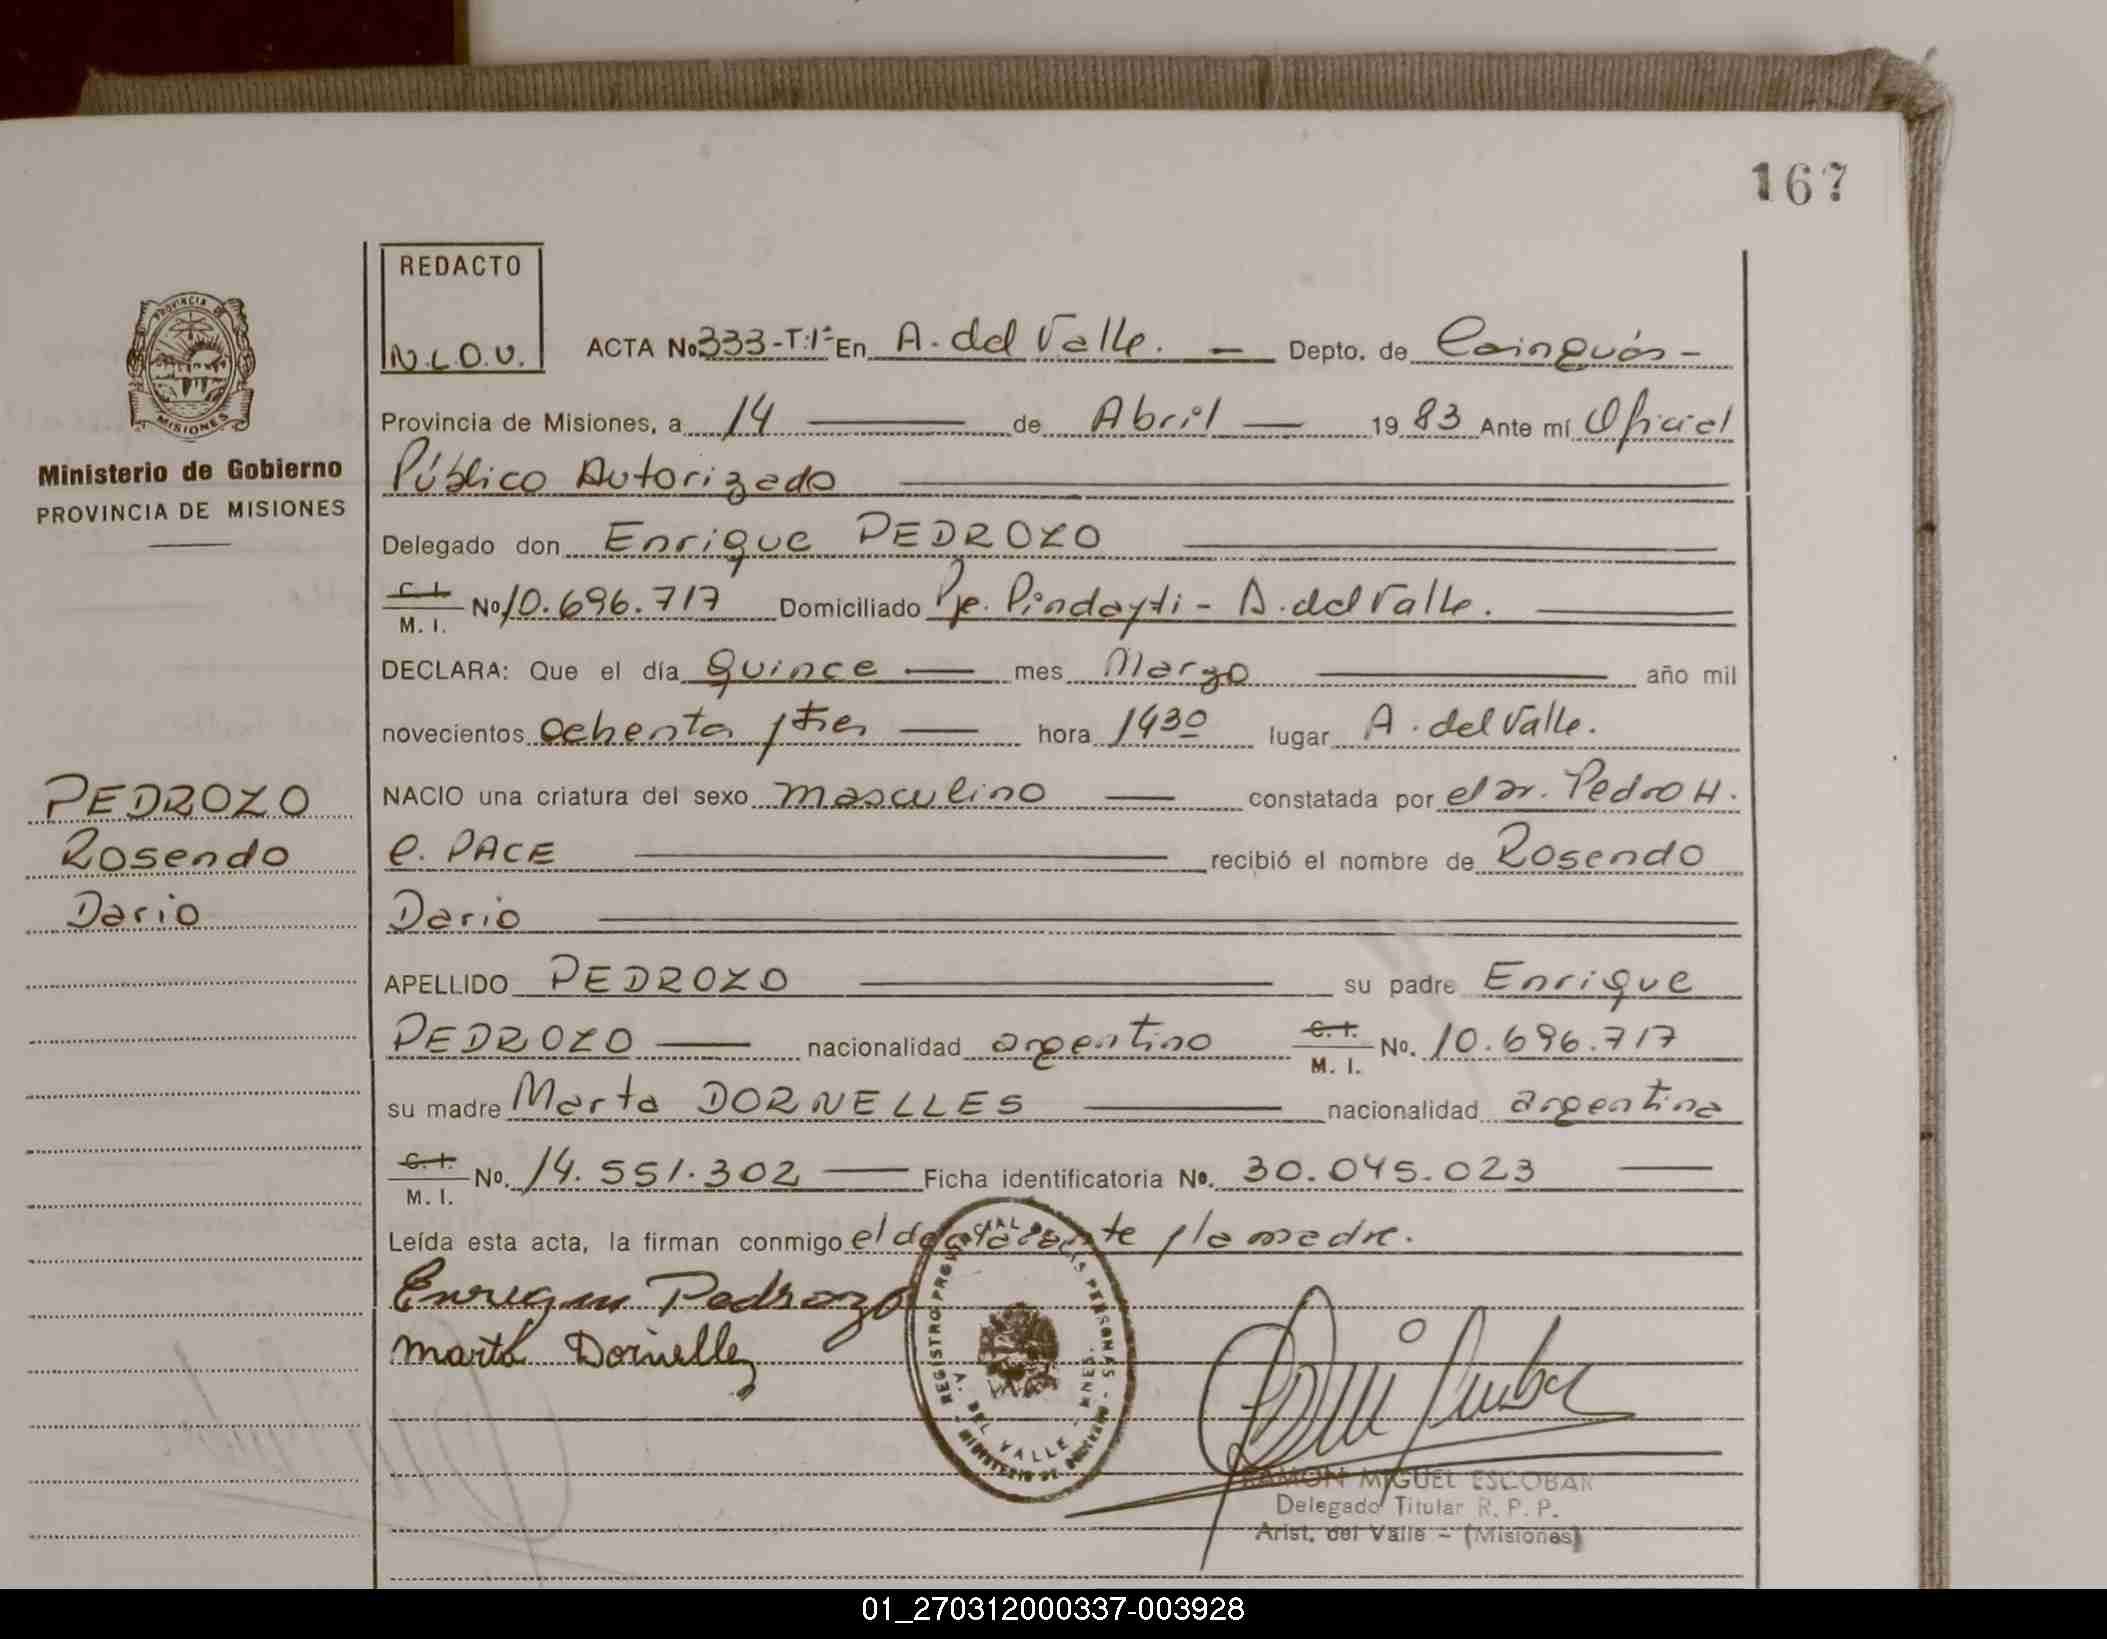 167
REDACTO
N.L.O.V.
ACTA No 333-T:1º En A. del Valle. — Depto. de Cainguás -
Provincia de Misiones, a 14 — de Abril — 19 83 Ante mí Oficial
Ministerio de Gobierno
PROVINCIA DE MISIONES
Público Autorizado
Delegado don Enrique PEDROZO
C. I.
M. I.
No 10.696.717 Domiciliado Pje. Pindayti - A. del Valle.
DECLARA: Que el día quince — mes Marzo — año mil
novecientos ochenta y tres — hora 1430 lugar A. del Valle.
PEDROZO
Rosendo
Dario
NACIO una criatura del sexo masculino — constatada por el Dr. Pedro H.
C. PACE — recibió el nombre de Rosendo
Dario
APELLIDO PEDROZO — su padre Enrique
PEDROZO — nacionalidad argentino C. I. M. I. No. 10.696.717
su madre Marta DORNELLES — nacionalidad argentina
C. I.
M. I.
No. 14.551.302 — Ficha identificatoria No. 30.045.023 —
Leída esta acta, la firman conmigo el declarante y la madre.
Enrique Pedrozo
Marta Dornelles
REGISTRO PROVINCIAL DE LAS PERSONAS
A. DEL VALLE - MNES.
MINISTERIO DE GOBIERNO
PROVINCIA DE
MISIONES
RAMON MIGUEL ESCOBAR
Delegado Titular R. P. P.
Arist. del Valle - (Misiones)
01_270312000337-003928